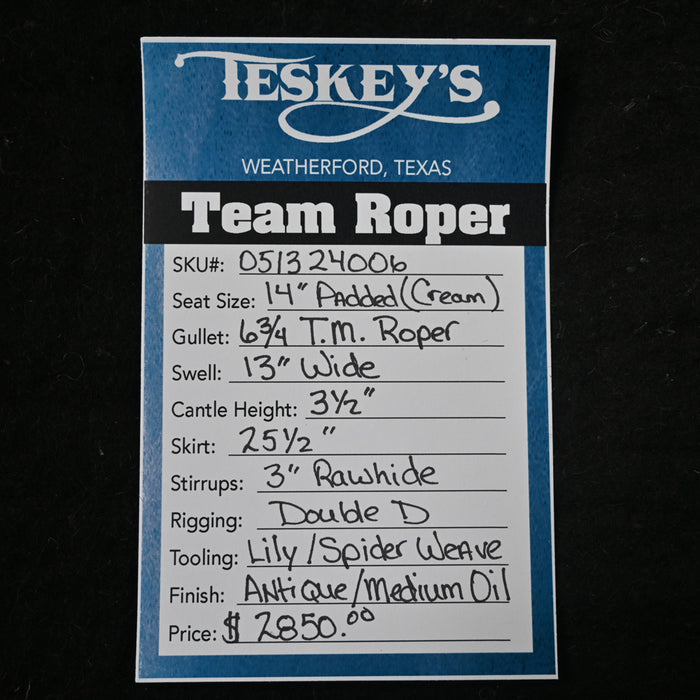 TESKEY'S
WEATHERFORD, TEXAS
Team Roper
SKU#: 051324006
Seat Size: 14" Padded (Cream)
Gullet: 6 3/4 T.M. Roper
Swell: 13" Wide
Cantle Height: 3 1/2"
Skirt: 25 1/2"
Stirrups: 3" Rawhide
Rigging: Double D
Tooling: Lily/Spider Weave
Finish: Antique/Medium Oil
Price: $ 2850.00